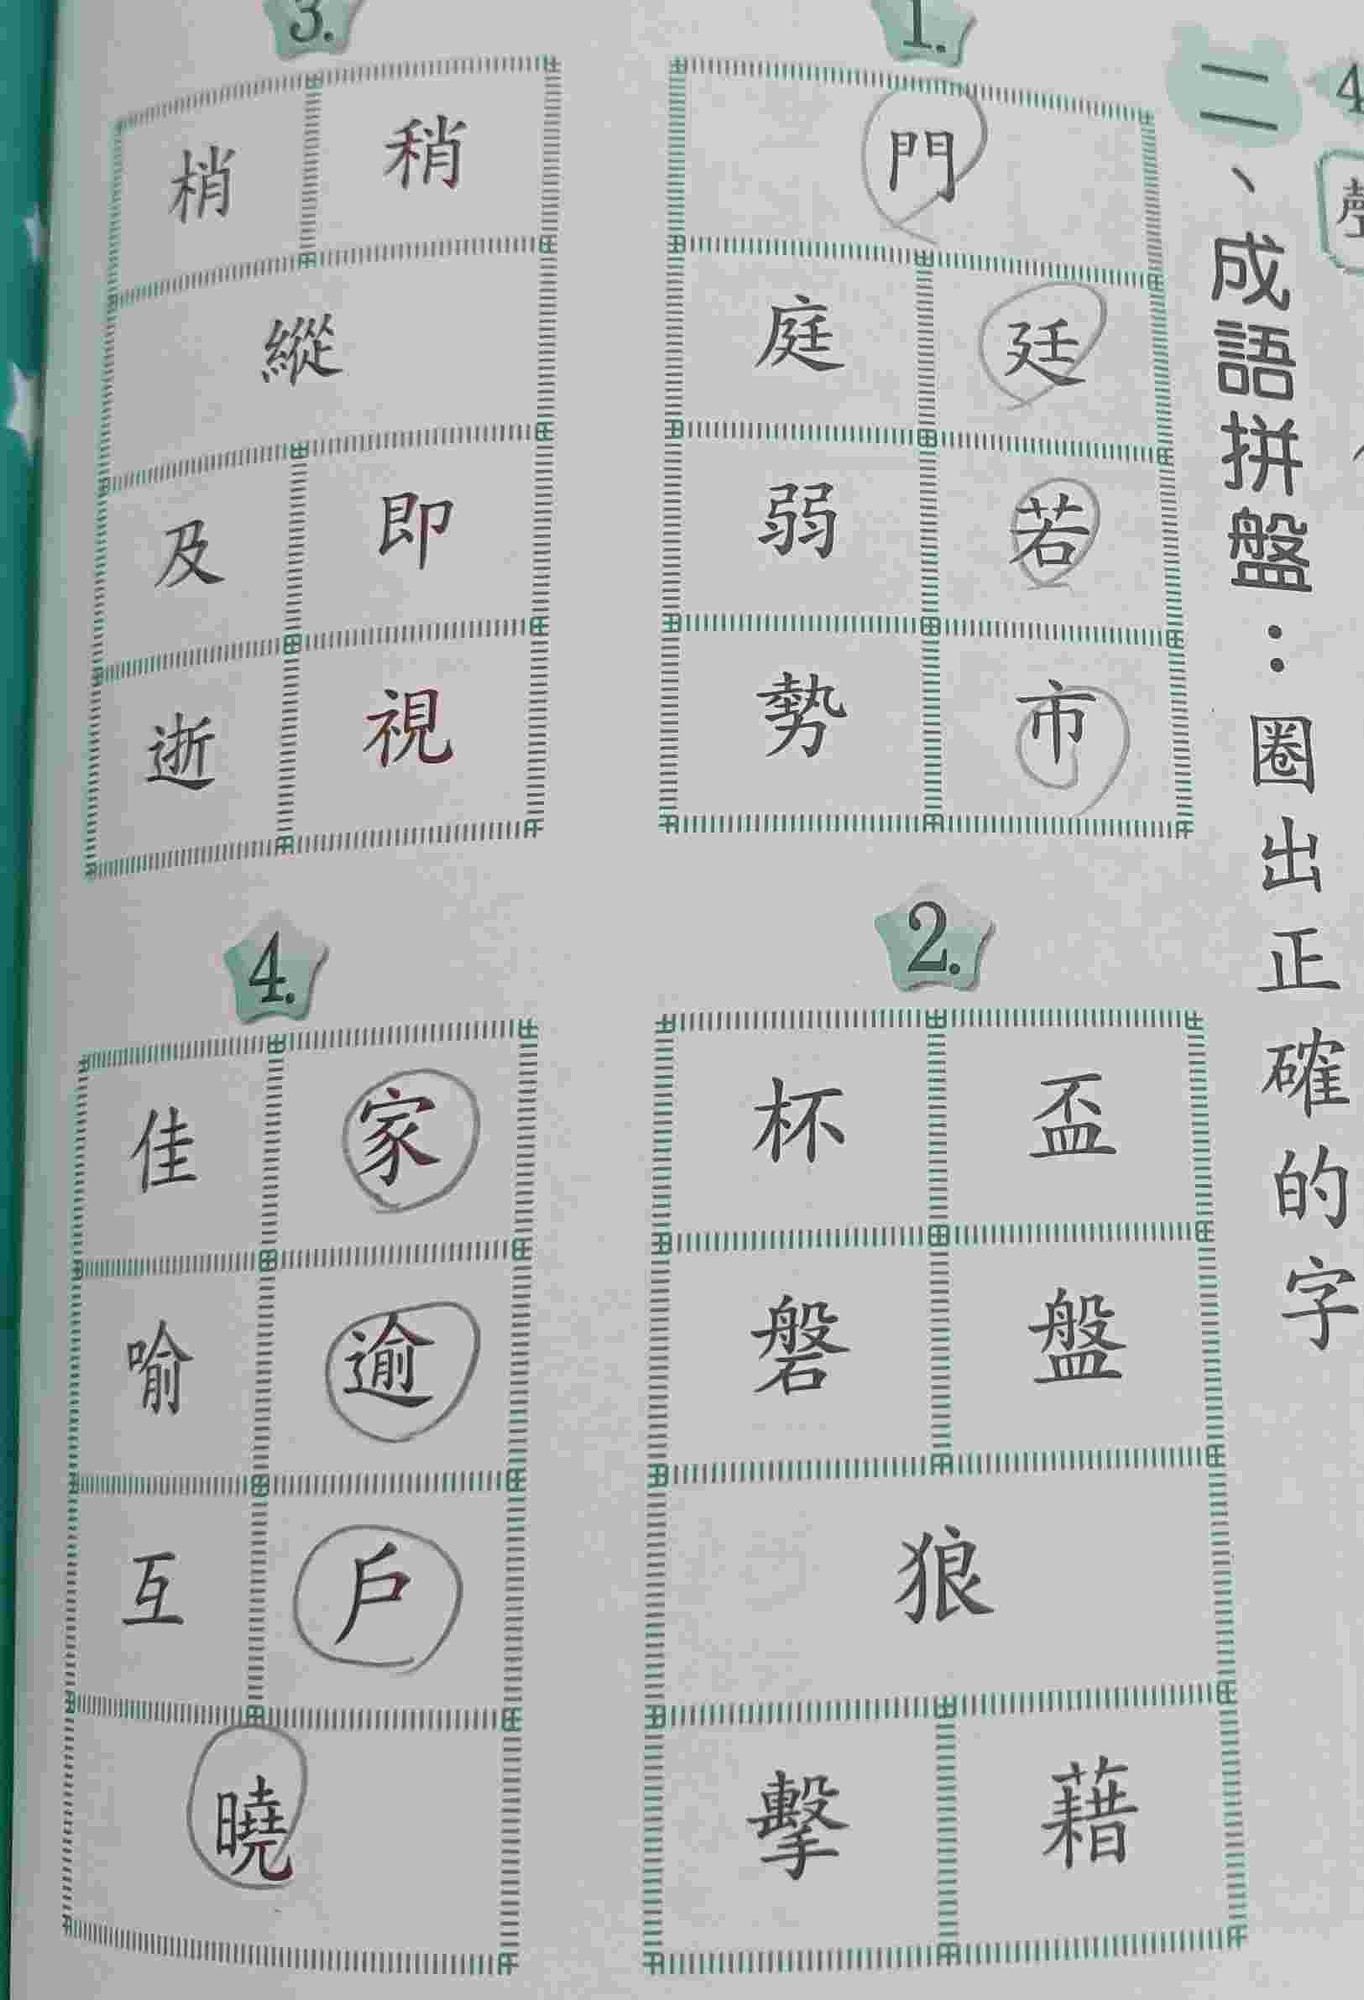 4
聲
二、成語拼盤：圈出正確的字
1.
門
廷 庭
若 弱
市 勢
2.
盃 杯
盤 磐
狼
藉 擊
3.
稍 梢
縱
即 及
視 逝
4.
家 佳
逾 喻
戶 互
曉